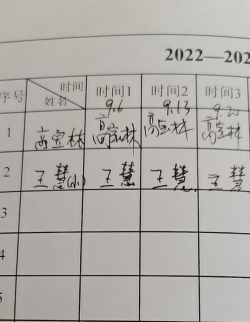 2022—202
序号 时间 姓名 时间1 时间2 时间3
9.6 9.13 9.2
1 高宝林 高宝林 高宝林 高宝林
2 王慧(小) 王慧 王慧 王慧
3
4
5